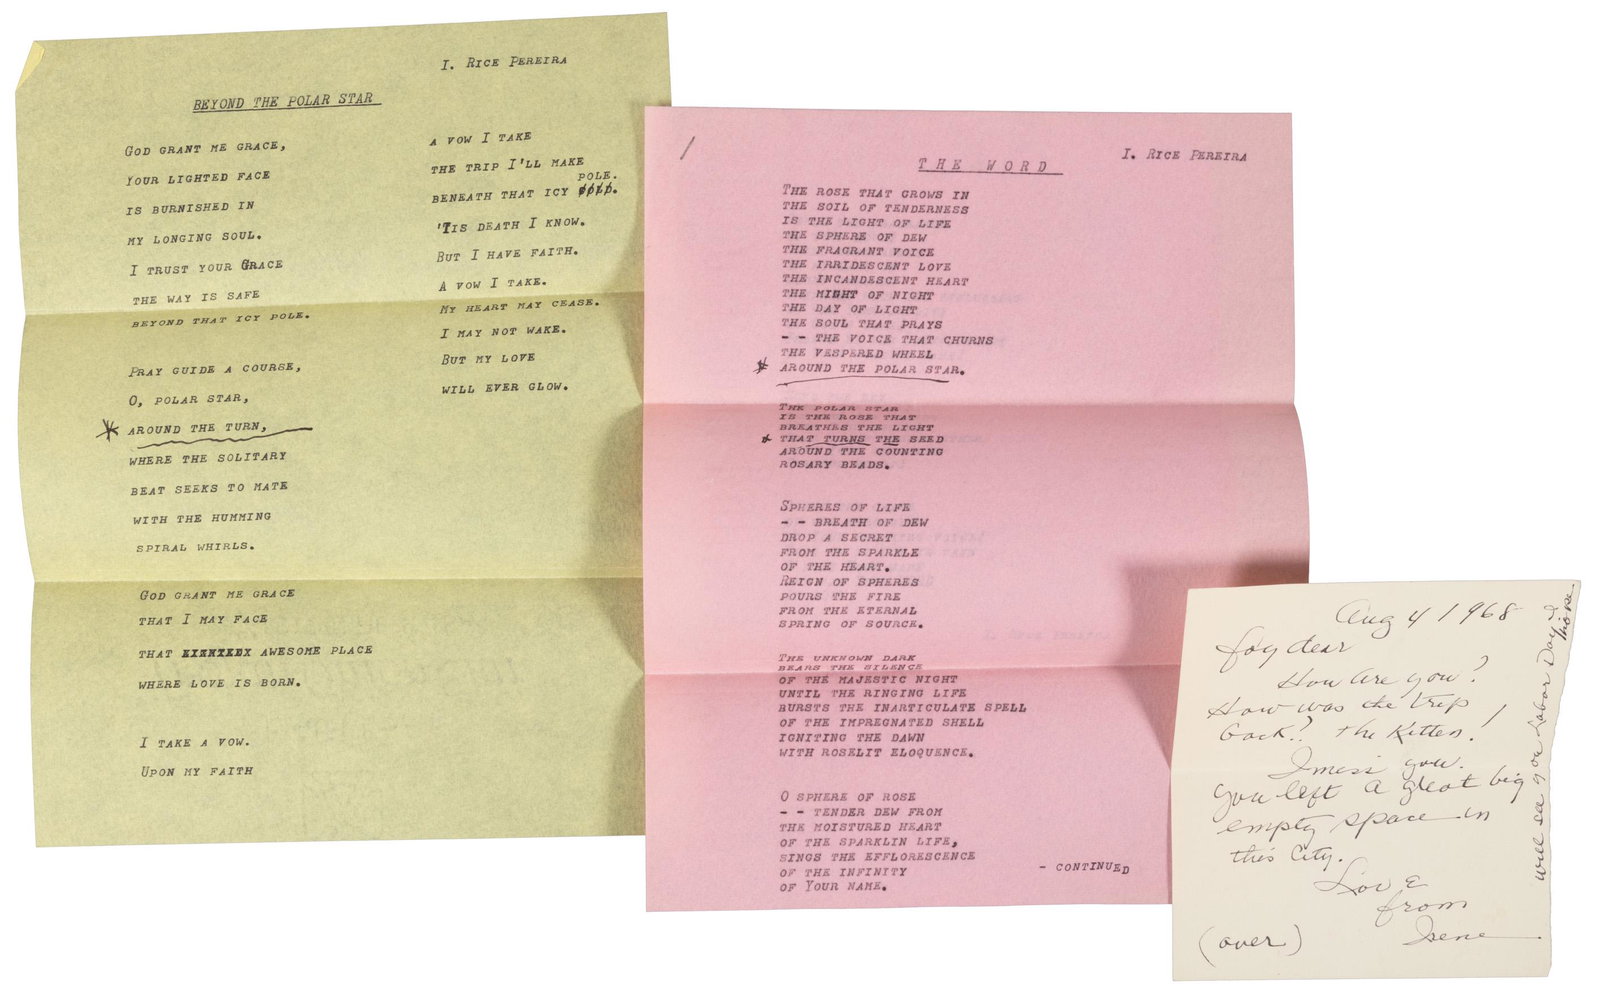 I. RICE PEREIRA
BEYOND THE POLAR STAR
GOD GRANT ME GRACE,
YOUR LIGHTED FACE
IS BURNISHED IN
MY LONGING SOUL.
I TRUST YOUR GRACE
THE WAY IS SAFE
BEYOND THAT ICY POLE.
PRAY GUIDE A COURSE,
O, POLAR STAR,
* AROUND THE TURN,
WHERE THE SOLITARY
BEAT SEEKS TO MATE
WITH THE HUMMING
SPIRAL WHIRLS.
GOD GRANT ME GRACE
THAT I MAY FACE
THAT AWESOME PLACE
WHERE LOVE IS BORN.
I TAKE A VOW.
UPON MY FAITH
A VOW I TAKE
THE TRIP I'LL MAKE
POLE.
BENEATH THAT ICY
'TIS DEATH I KNOW.
BUT I HAVE FAITH.
A VOW I TAKE.
MY HEART MAY CEASE.
I MAY NOT WAKE.
BUT MY LOVE
WILL EVER GLOW.
/
THE WORD
I. RICE PEREIRA
THE ROSE THAT GROWS IN
THE SOIL OF TENDERNESS
IS THE LIGHT OF LIFE
THE SPHERE OF DEW
THE FRAGRANT VOICE
THE IRRIDESCENT LOVE
THE INCANDESCENT HEART
THE MIGHT OF NIGHT
THE DAY OF LIGHT
THE SOUL THAT PRAYS
-- THE VOICE THAT CHURNS
THE VESPERED WHEEL
* AROUND THE POLAR STAR.
THE POLAR STAR
IS THE ROSE THAT
BREATHES THE LIGHT
* THAT TURNS THE SEED
AROUND THE COUNTING
ROSARY BEADS.
SPHERES OF LIFE
-- BREATH OF DEW
DROP A SECRET
FROM THE SPARKLE
OF THE HEART.
REIGN OF SPHERES
POURS THE FIRE
FROM THE ETERNAL
SPRING OF SOURCE.
THE UNKNOWN DARK
BEARS THE SILENCE
OF THE MAJESTIC NIGHT
UNTIL THE RINGING LIFE
BURSTS THE INARTICULATE SPELL
OF THE IMPREGNATED SHELL
IGNITING THE DAWN
WITH ROSELIT ELOQUENCE.
O SPHERE OF ROSE
-- TENDER DEW FROM
THE MOISTURED HEART
OF THE SPARKLIN LIFE,
SINGS THE EFFLORESCENCE
OF THE INFINITY
OF YOUR NAME.
- CONTINUED
Aug 4 1968
Joy dear
How are you?
How was the trip
back? The Kitten!
I miss you.
You left a great big
empty space in
this City.
Love
from
Irene
(over)
will see you Labor Day I
hope.